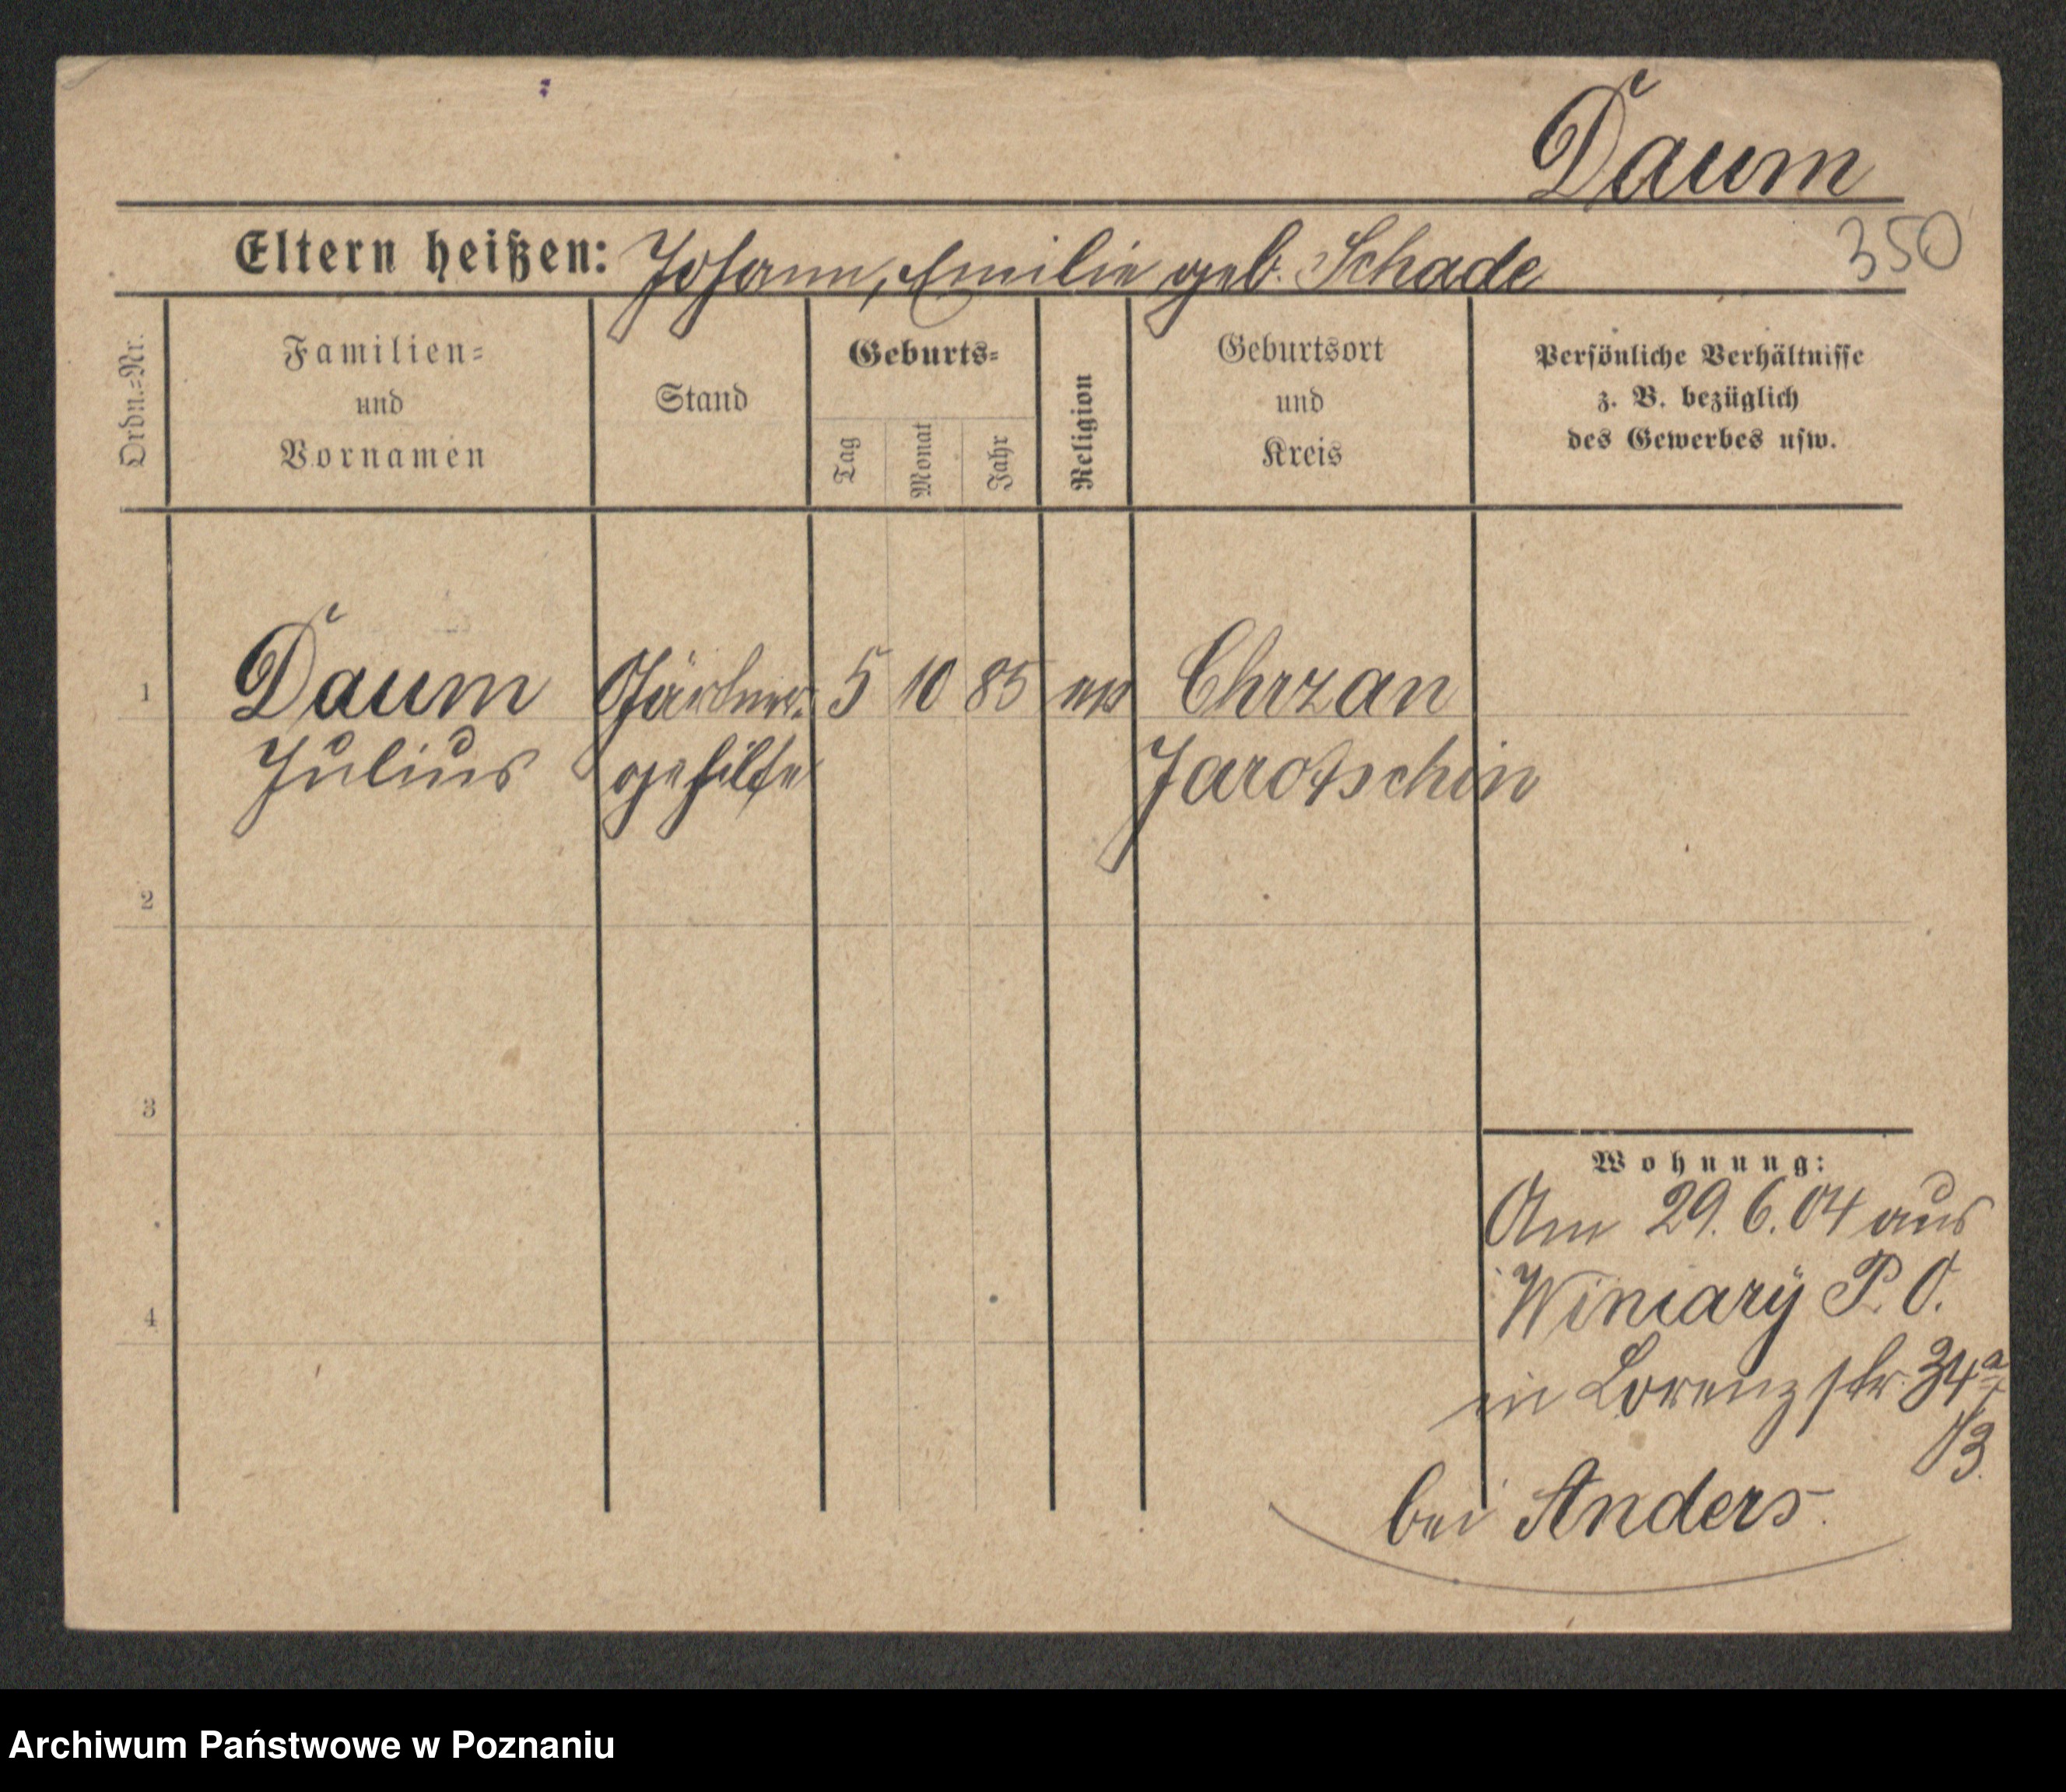 Daum
350
Eltern heißen: Johann, Emilie geb. Schade
Ordn.=Nr.
Familien=
und
Vornamen
Stand
Geburts=
Tag
Monat
Jahr
Religion
Geburtsort
und
Kreis
Persönliche Verhältnisse
z. B. bezüglich
des Gewerbes usw.
1 Daum Gärtner= 5 10 85 Chrzan
Julius gehilfe Jarotschin
2
3
4
Wohnung:
Am 29. 6. 04 aus
Winiary P. O.
in Lorenzstr. 34a
bei Anders.
Archiwum Państwowe w Poznaniu